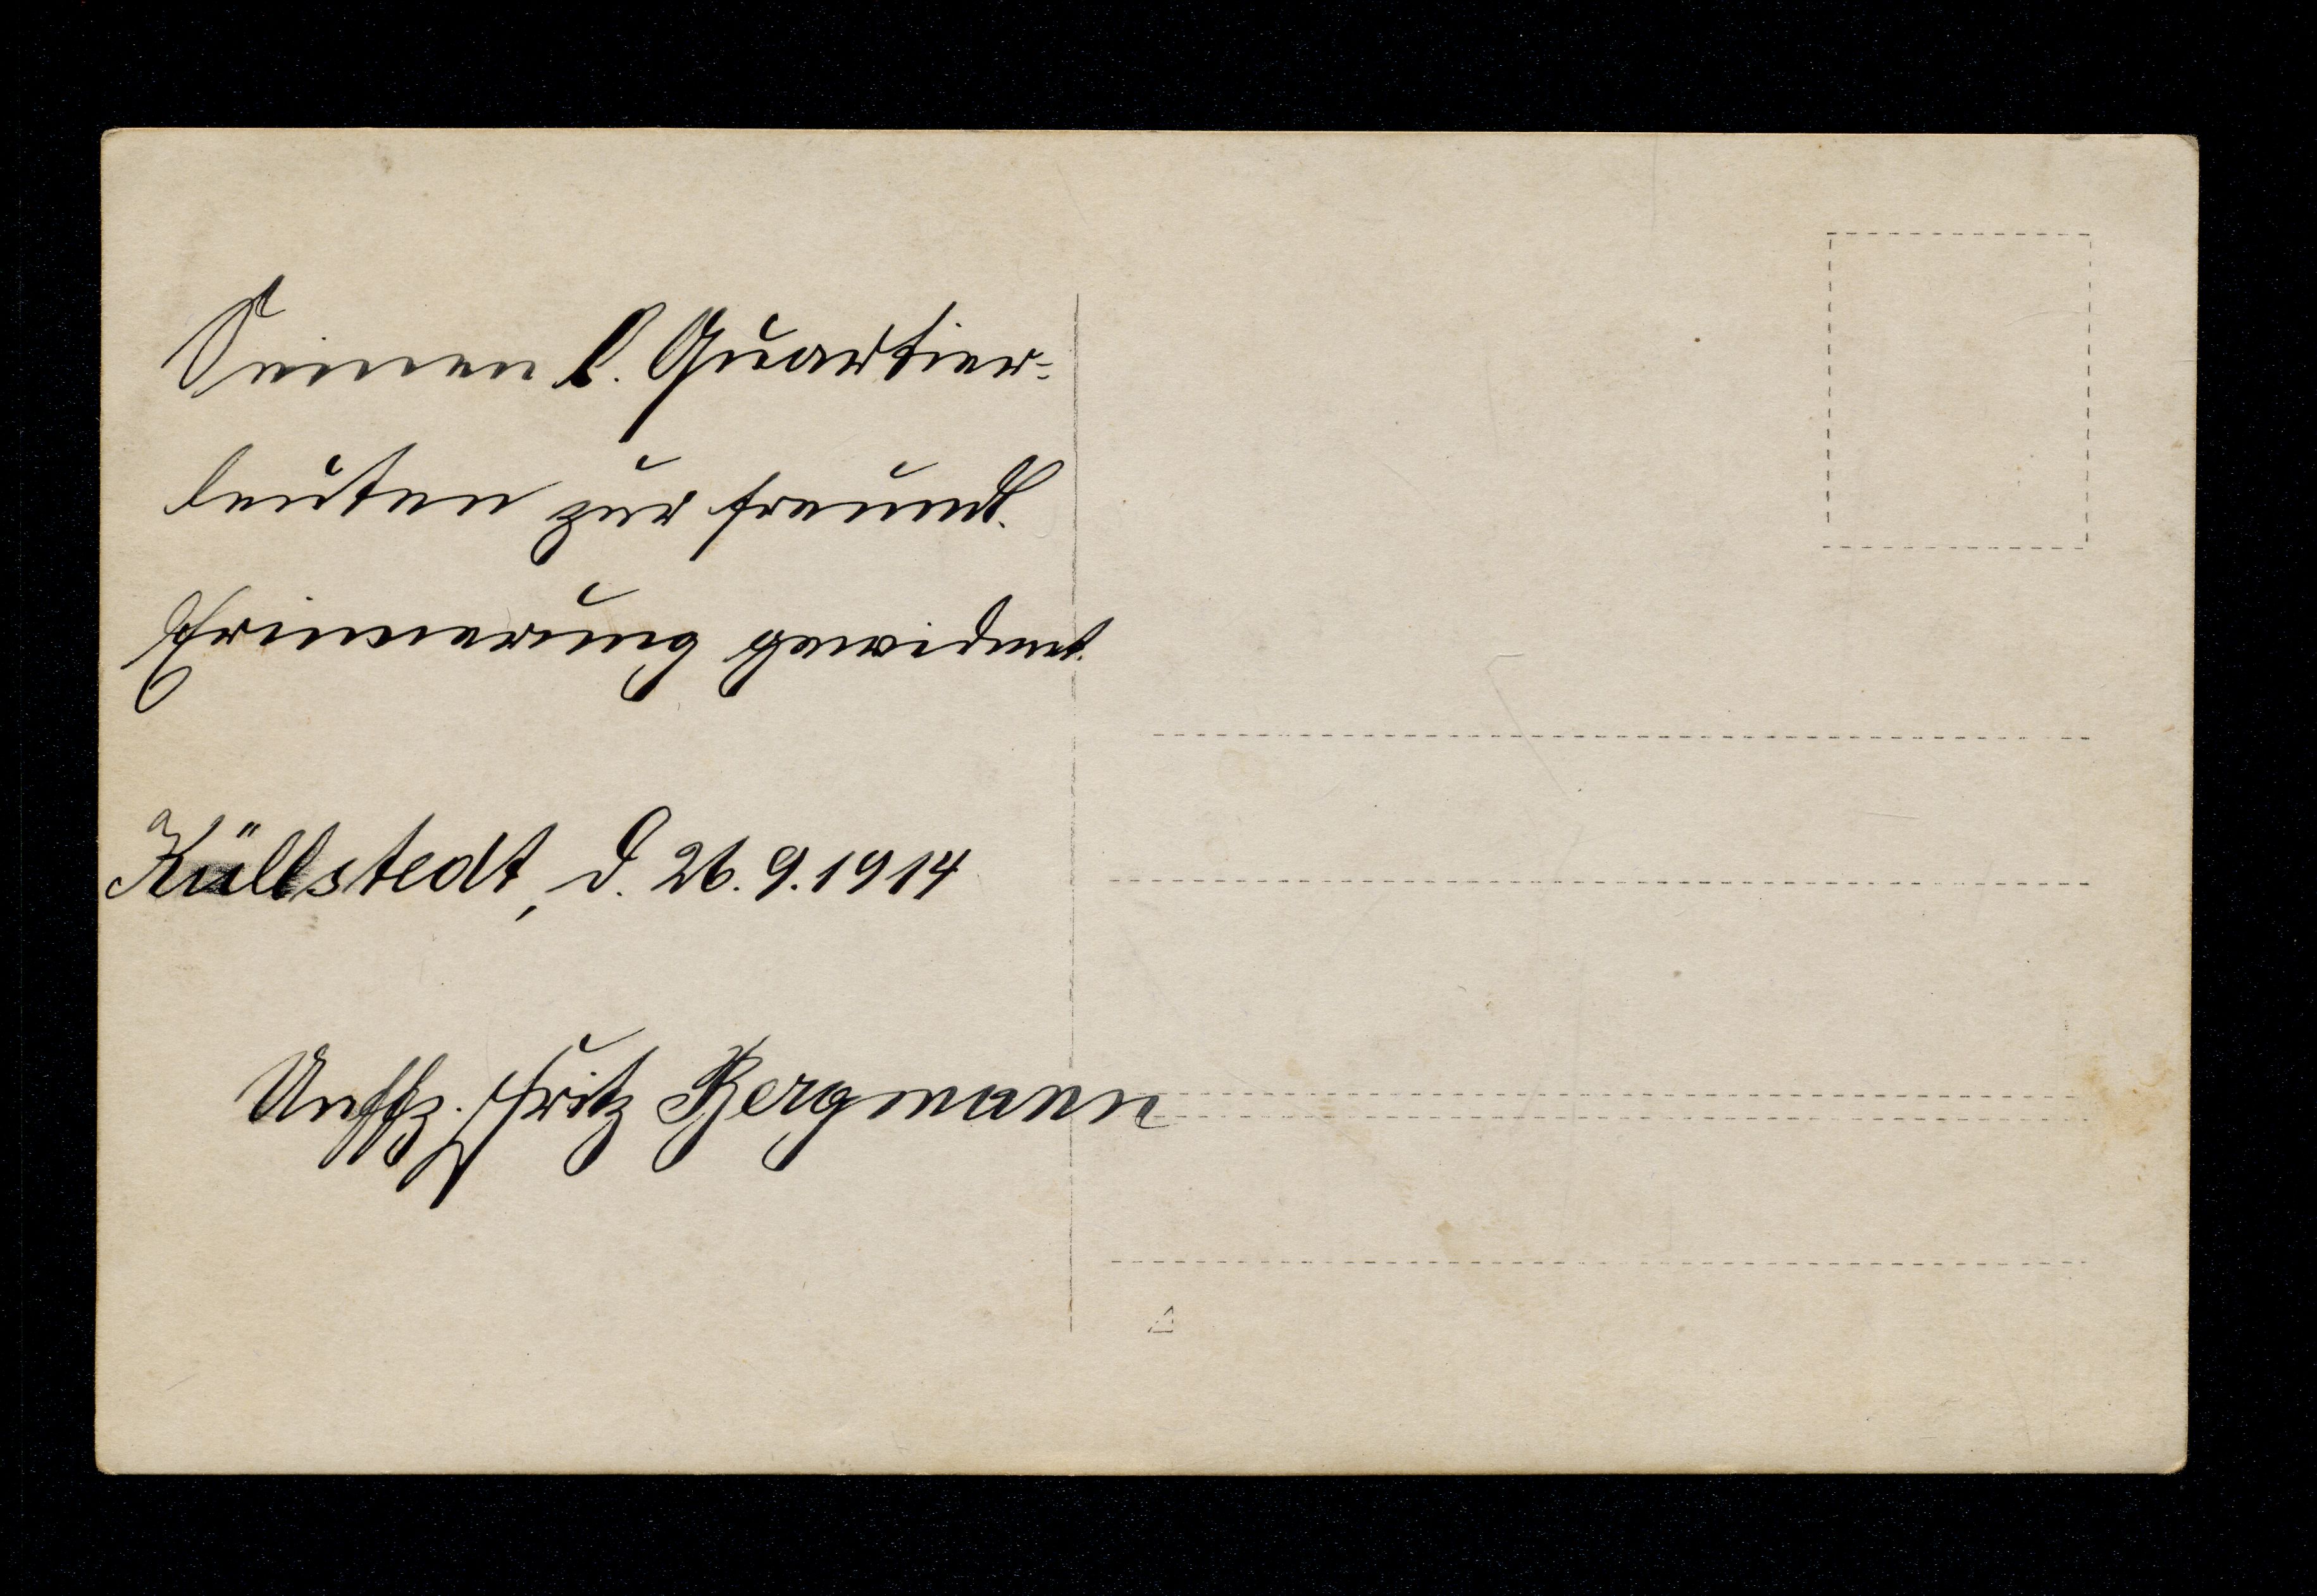 Seinen l. Quartier-
leuten zur freundl.
Erinnerung gewidmet.
Küllstedt, d. 26.9.1914
Uffz. Fritz Bergmann